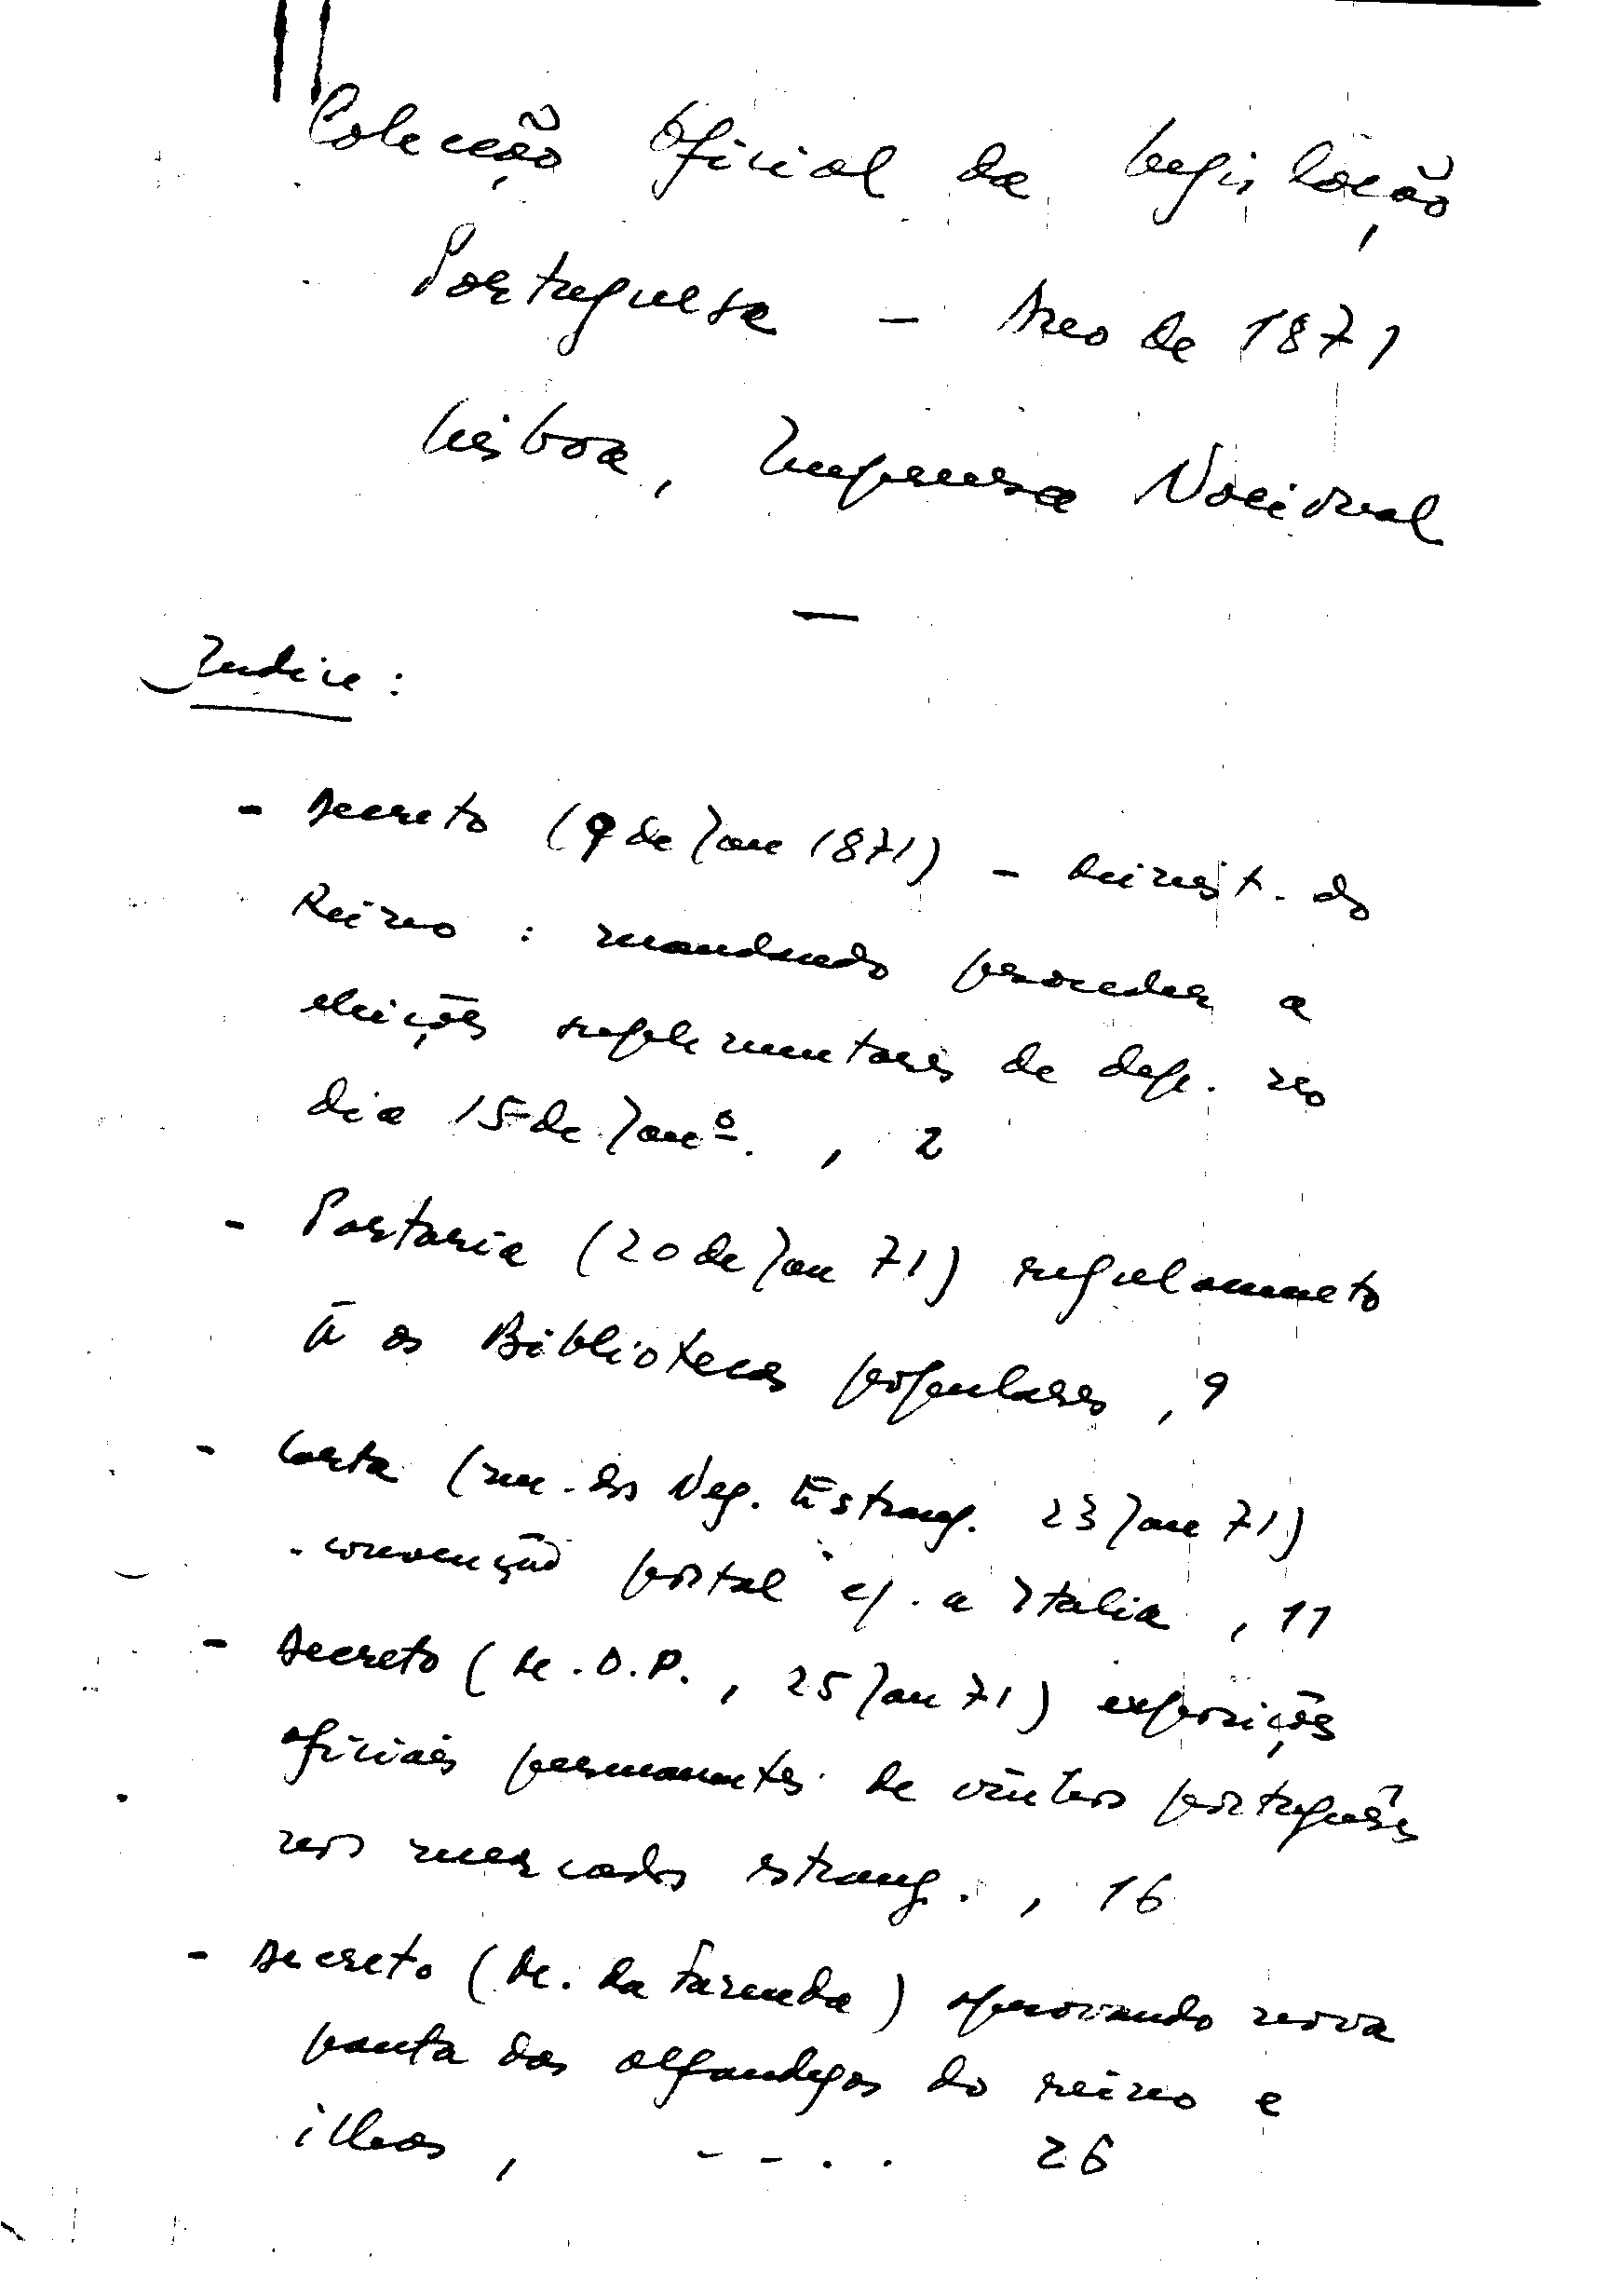 Colecção Oficial da Legislação
Portuguesa - Ano de 1871
Lisboa, Imprensa Nacional
Indice :
- Decreto (9 de Jan 1871) - Minist. do
Reino : mandando proceder a
eleições suplementares de dep. no
dia 15 de Janº. , 2
- Portaria (20 de Jan 71) regulamento
os Bibliotecas populares , 9
- Carta (m. dos Neg. Estrang. 23 Jan 71)
. convenção postal c/. a Italia , 11
- Decreto (M.O.P. , 25 Jan 71) exposições
oficiais permanentes de vinhos português
nos mercados estrang. , 16
- Decreto (M. da Fazenda) aprovando nova
pauta das alfandegas do reino e
ilhas, - - . . 26